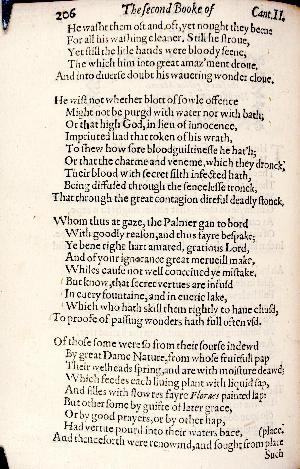 206 The second Booke of Cant. II.
He washt them oft and oft, yet nought they beene
For all his washing cleaner. Still he stroue,
Yet still the litle hands were bloody seene,
The which him into great amaz'ment droue,
And into diuerse doubt his wauering wonder cloue.
He wist not whether blott of fowle offence
Might not be purgd with water nor with bath;
Or that high God, in lieu of innocence,
Imprinted had that token of his wrath,
To shew how sore bloodguiltinesse he hat'th;
Or that the charme and veneme, which they dronck,
Their blood with secret filth infected hath,
Being diffused through the sencelesse tronck,
That through the great contagion direful deadly stonck.
Whom thus at gaze, the Palmer gan to bord
With goodly reason, and thus fayre bespake;
Ye bene right hart amated, gratious Lord,
And of your ignorance great merueill make,
Whiles cause not well conceiued ye mistake,
But know, that secret vertues are infusd
In euery fountaine, and in euerie lake,
Which who hath skill them rightly to haue chusd,
To proofe of passing wonders hath full often vsd.
Of those some were so from their sourse indewd
By great Dame Nature, from whose fruitfull pap
Their welheads spring, and are with moisture deawd;
Which feedes each liuing plant with liquid sap,
And filles with flowres fayre Floraes painted lap:
But other some by guifte of later grace,
Or by good prayers, or by other hap,
Had vertue pourd into their waters bace, (place.
And thenceforth were renowmd, and sought from place
Such